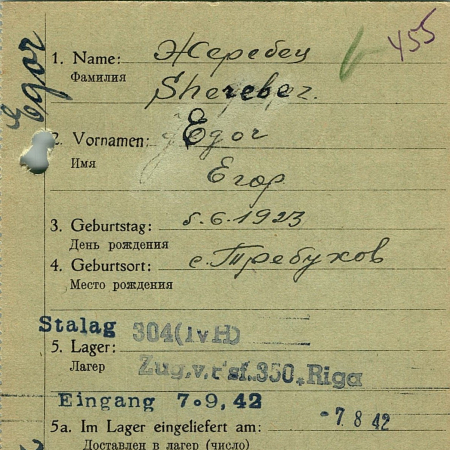 Egor
455
1. Name: Жеребец
Фамилия
Sherebez.
2. Vornamen: Egor
Имя
Егор
3. Geburtstag: 5.6.1923
День рождения
4. Geburtsort: с. Требухов
Место рождения
Stalag 304(IVH)
5. Lager:
Лагер Zug.v. 350, Riga
Eingang 7.9.42
5a. Im Lager eingeliefert am: -7. 8 42
Доставлен в лагер (число)